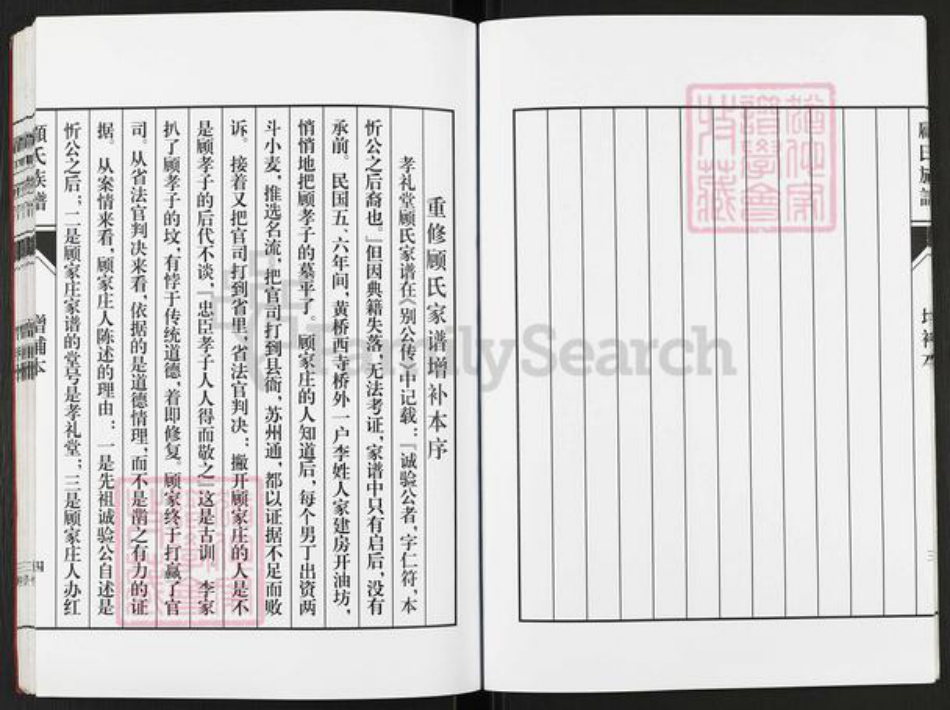 重修顾氏家谱增补本序
孝礼堂顾氏家谱在《别公传》中记载：「诚验公者，字仁符，本
忻公之后裔也。」但因典籍失落，无法考证，家谱中只有启后，没有
承前。民国五、六年间，黄桥西寺桥外一户李姓人家建房开油坊，
悄悄地把顾孝子的墓平了。顾家庄的人知道后，每个男丁出资两
斗小麦，推选名流，把官司打到县衙，苏州通，都以证据不足而败
诉。接着又把官司打到省里，省法官判决：撇开顾家庄的人是不
是顾孝子的后代不谈，「忠臣孝子人人得而敬之」这是古训 李家
扒了顾孝子的坟，有悖于传统道德，着即修复。顾家终于打赢了官
司。从省法官判决来看，依据的是道德情理，而不是凿之有力的证
据。从案情来看，顾家庄人陈述的理由：一是先祖诚验公自述是
忻公之后；二是顾家庄家谱的堂号是孝礼堂；三是顾家庄人办红
顾氏族谱
增补本
顾氏族谱
增补本
三
FamilySearch